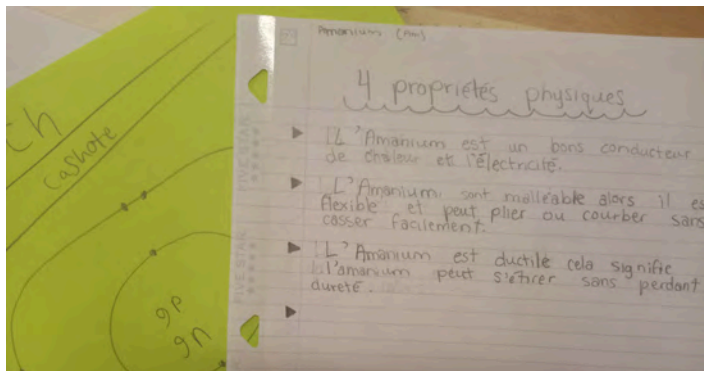 ch
cashote
9P
9n
FIVE STAR
FIVE STAR
Amanium (Am)
4 propriétés physiques
L'Amanium est un bons conducteur
de chaleur et l'électricité.
L'Amanium sont malléable alors il es
flexible et peut plier ou courber sans
casser facilement.
L'Amanium est ductile cela signifie
l'amanium peut s'étirer sans perdant
dureté.